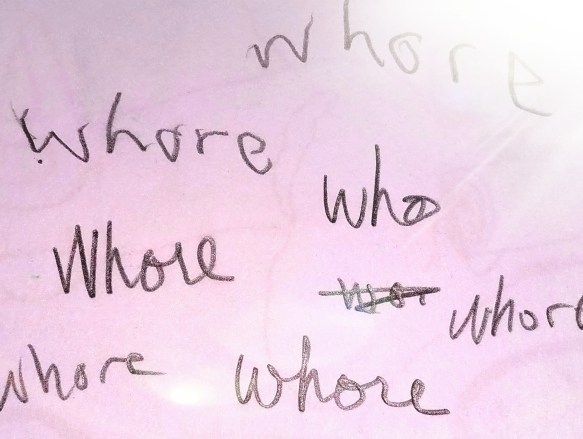 whore
whore
who
Whore
whore
whore
whore